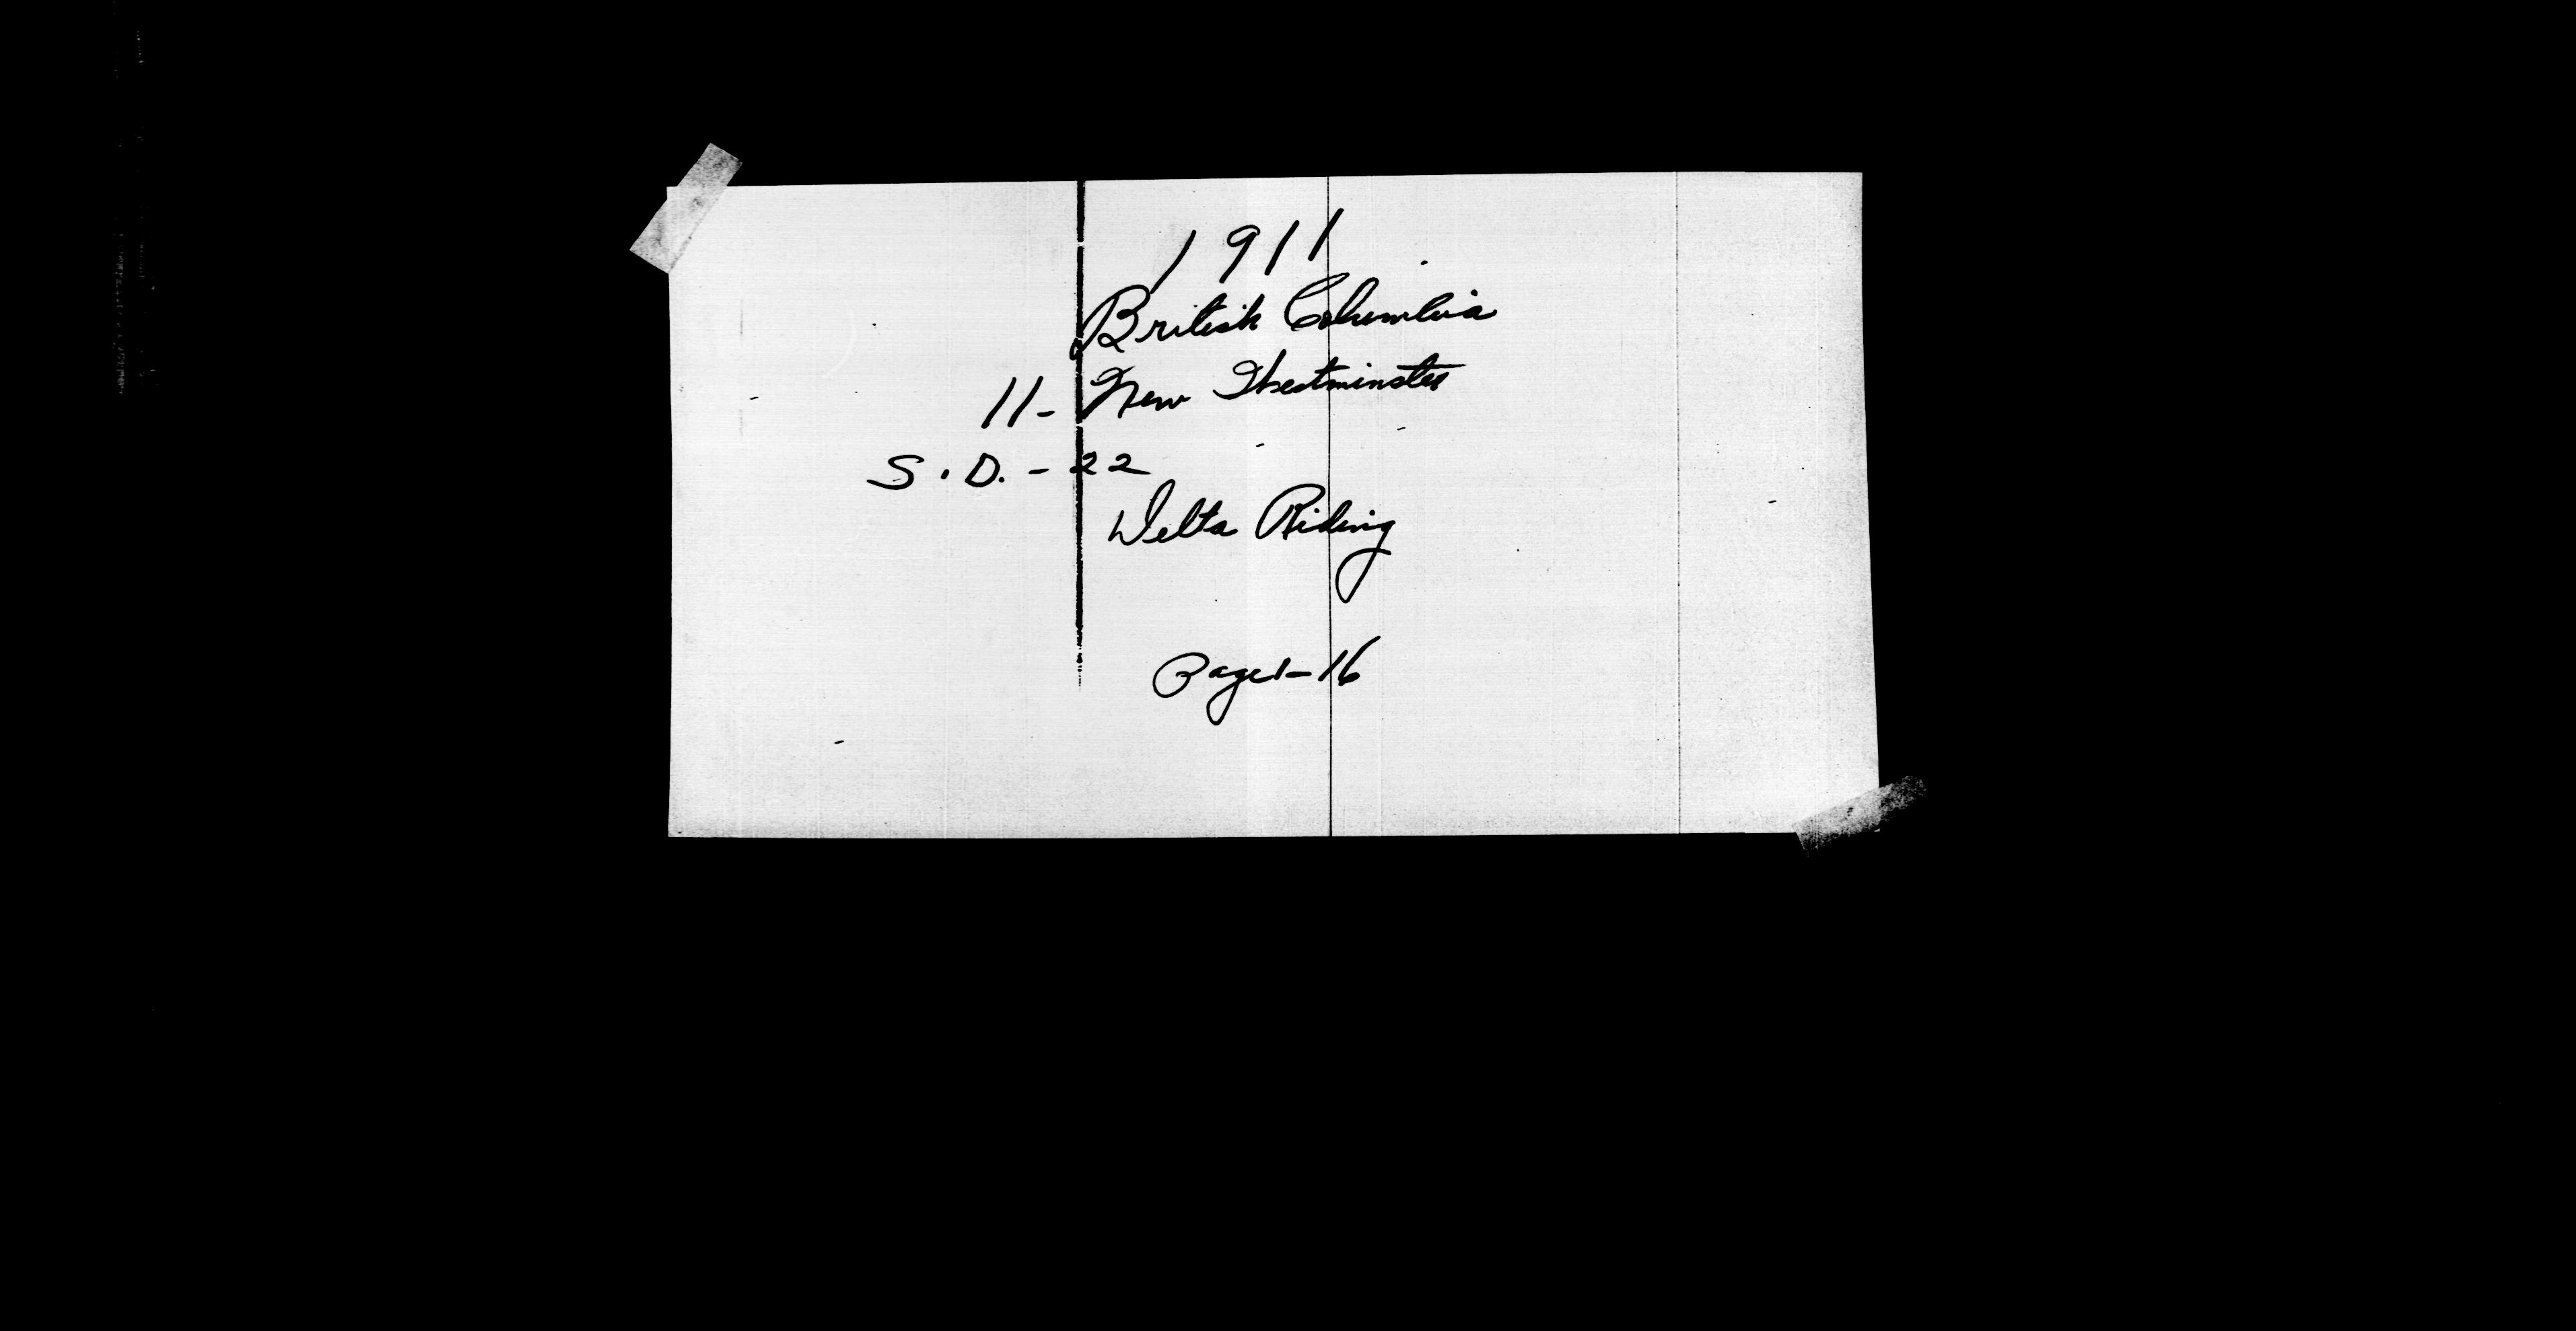 1911
British Columbia
11- New Westminster
S.D. - 22
Delta Riding
Page 1-16